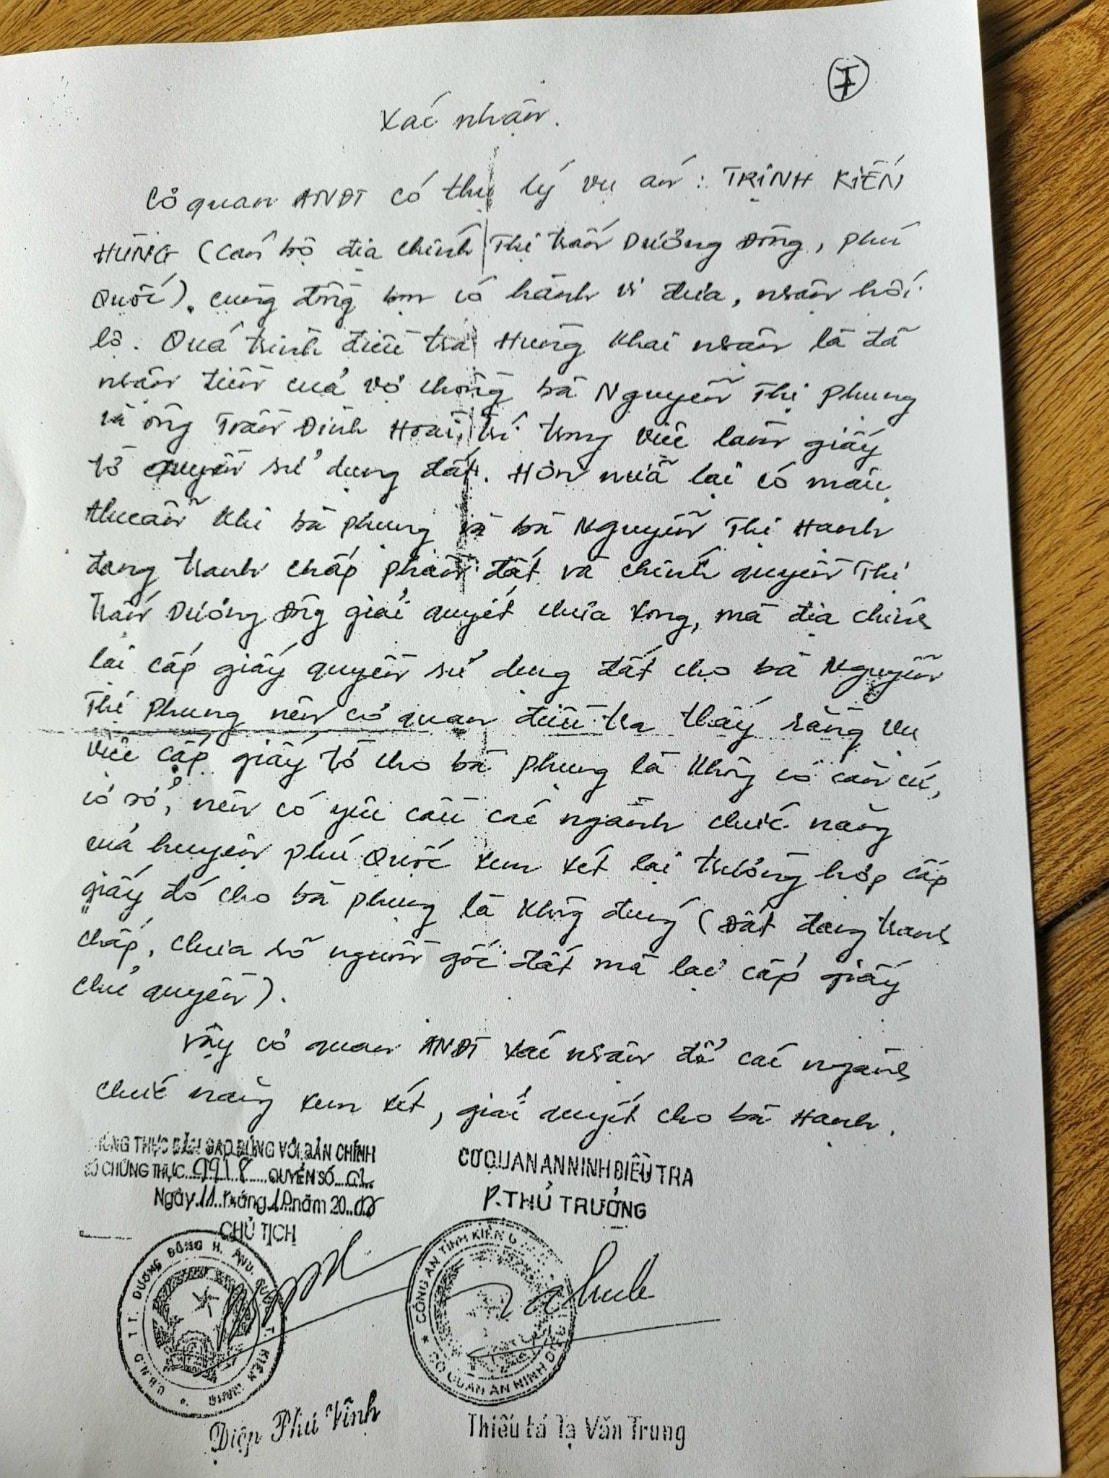 I
Xác nhận.
Cơ quan ANĐT có thụ lý vụ án: TRỊNH KIẾN
HÙNG (Cán bộ địa chính Thị trấn Dương Đông, Phú
Quốc), cùng đồng bọn có hành vi đưa, nhận hối
lộ. Quá trình điều tra Hùng khai nhận là đã
nhận tiền của vợ chồng bà Nguyễn Thị Phụng
và ông Trần Đình Hoài, trong việc làm giấy
tờ quyền sử dụng đất. Hơn nữa lại có mâu
thuẫn khi bà Phụng và bà Nguyễn Thị Hạnh
đang tranh chấp phần đất và chính quyền Thị
trấn Dương Đông giải quyết chưa xong, mà địa chính
lại cấp giấy quyền sử dụng đất cho bà Nguyễn
Thị Phụng nên cơ quan điều tra thấy rằng vụ
việc cấp giấy tờ cho bà Phụng là không có căn cứ,
cơ sở, nên có yêu cầu các ngành chức năng
của huyện Phú Quốc xem xét lại trường hợp cấp
giấy đó cho bà Phụng là không đúng (Đất đang tranh
chấp, chưa rõ nguồn gốc đất mà lại cấp giấy
chủ quyền).
Vậy cơ quan ANĐT xác nhận để các ngành
chức năng xem xét, giải quyết cho bà Hạnh.
CHỨNG THỰC BẢN SAO ĐÚNG VỚI BẢN CHÍNH
SỐ CHỨNG THỰC 9918 QUYỂN SỐ 01
Ngày 11 tháng 10 năm 20
CHỦ TỊCH
Diệp Phú Vĩnh
CƠ QUAN AN NINH ĐIỀU TRA
P.THỦ TRƯỞNG
CÔNG AN TỈNH KIÊN G
Thiếu tá Tạ Văn Trung